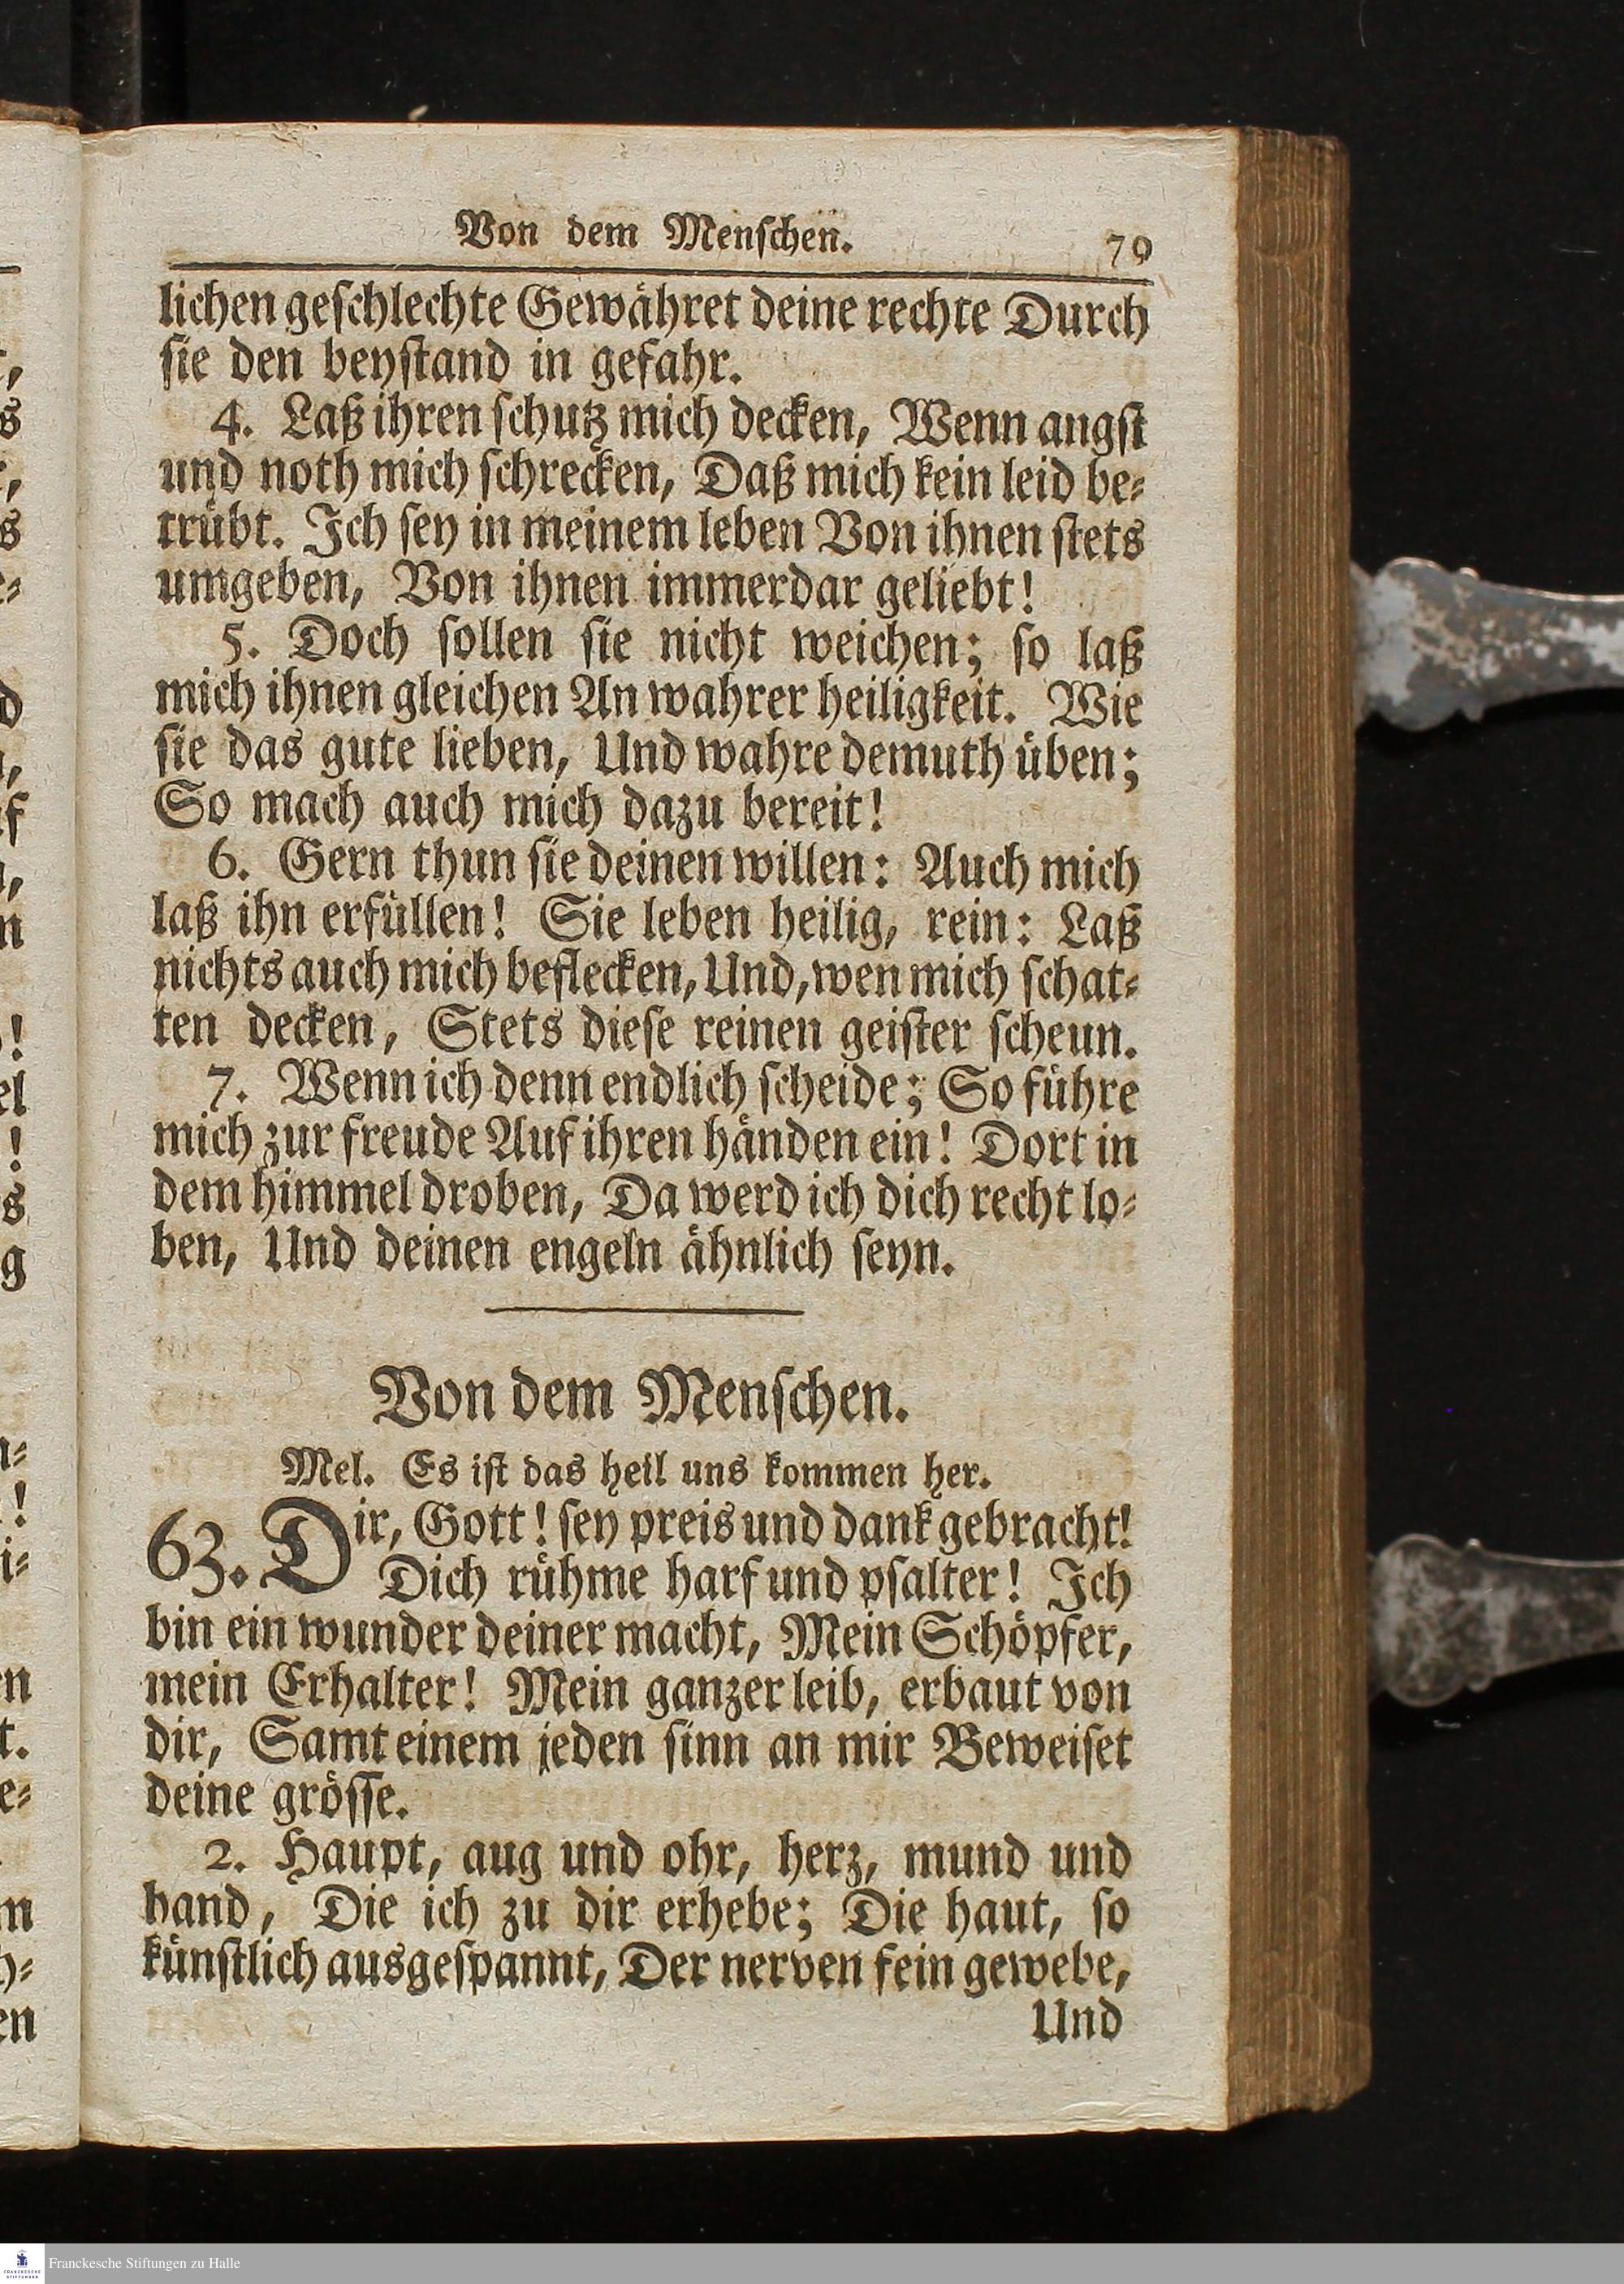 Von dem Menschen. 79
lichen geschlechte Gewähret deine rechte Durch
sie den beystand in gefahr.
4. Laß ihren schutz mich decken, Wenn angst
und noth mich schrecken, Daß mich kein leid be-
trübt. Ich sey in meinem leben Von ihnen stets
umgeben, Von ihnen immerdar geliebt!
5. Doch sollen sie nicht weichen; so laß
mich ihnen gleichen An wahrer heiligkeit. Wie
sie das gute lieben, Und wahre demuth üben;
So mach auch mich dazu bereit!
6. Gern thun sie deinen willen: Auch mich
laß ihn erfüllen! Sie leben heilig, rein: Laß
nichts auch mich beflecken, Und, wen mich schat-
ten decken, Stets diese reinen geister scheun.
7. Wenn ich denn endlich scheide; So führe
mich zur freude Auf ihren händen ein! Dort in
dem himmel droben, Da werd ich dich recht lo-
ben, Und deinen engeln ähnlich seyn.
Von dem Menschen.
Mel. Es ist das heil uns kommen her.
63. Dir, Gott! sey preis und dank gebracht!
Dich rühme harf und psalter! Ich
bin ein wunder deiner macht, Mein Schöpfer,
mein Erhalter! Mein ganzer leib, erbaut von
dir, Samt einem jeden sinn an mir Beweiset
deine grösse.
2. Haupt, aug und ohr, herz, mund und
hand, Die ich zu dir erhebe; Die haut, so
künstlich ausgespannt, Der nerven fein gewebe,
Und
Franckesche Stiftungen zu Halle